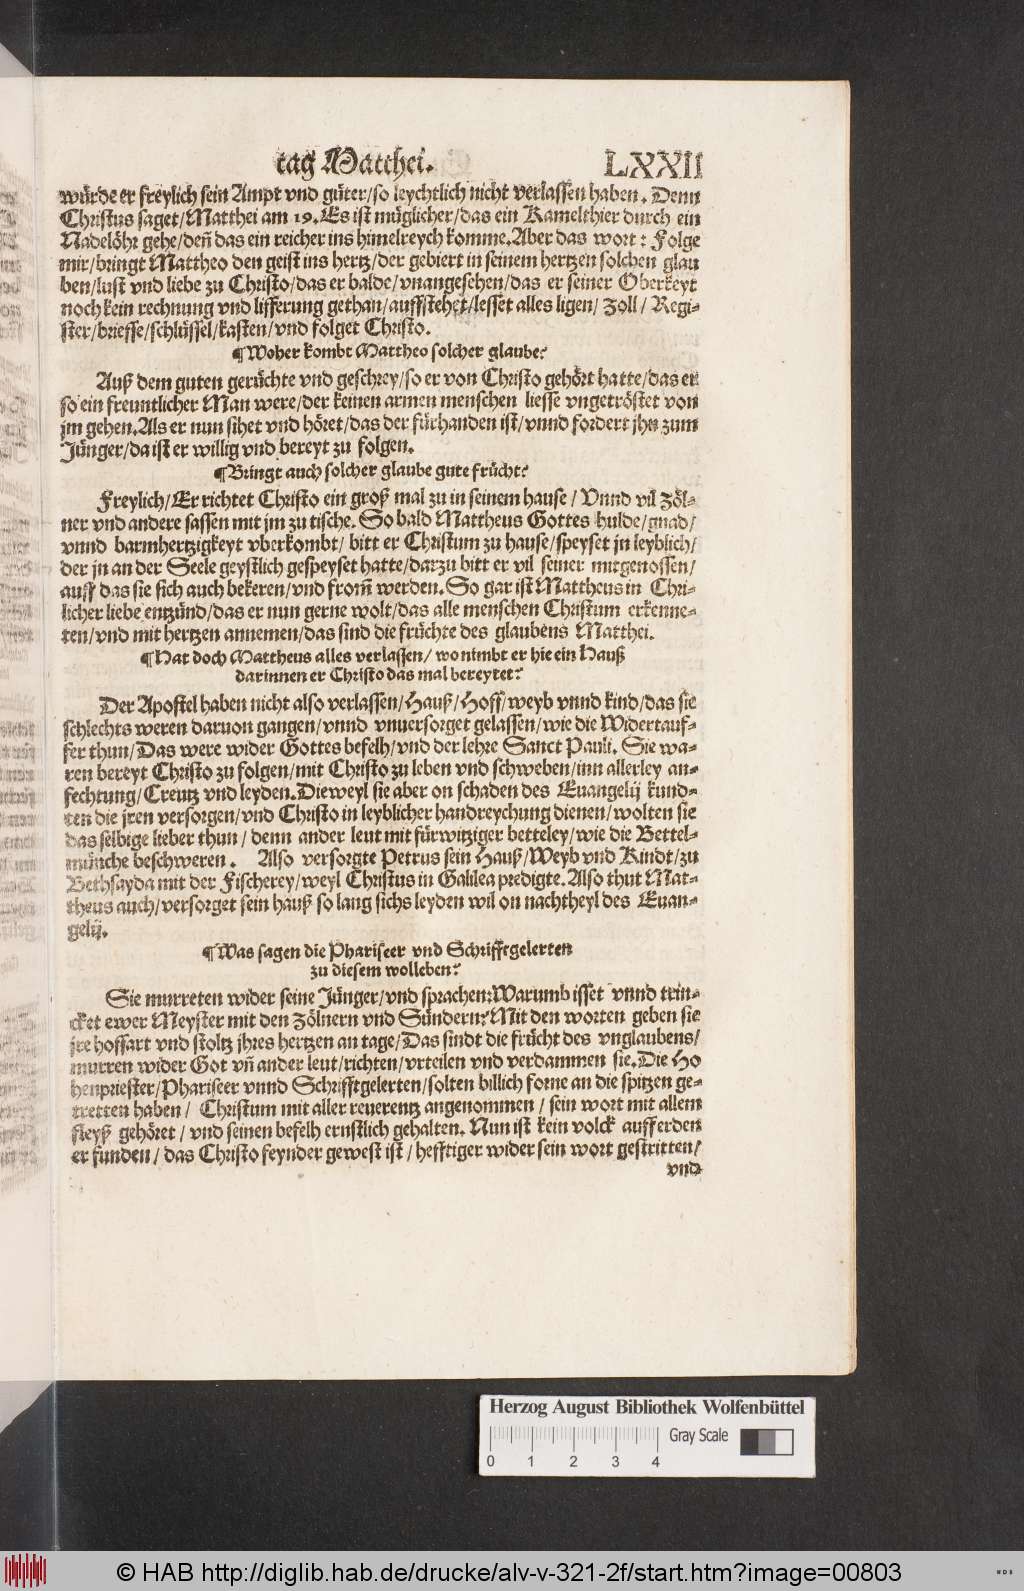 tag Matthei. LXXII
würde er freylich sein Ampt vnd güter/so leychtlich nicht verlassen haben. Denn
Christus saget/Matthei am 19. Es ist müglicher/das ein Kamelthier durch ein
Nadelöhr gehe/deñ das ein reicher ins himelreych komme. Aber das wort: Folge
mir/bringt Mattheo den geist ins hertz/der gebiert in seinem hertzen solchen glau
ben/lust vnd liebe zu Christo/das er balde/vnangesehen/das er seiner Oberkeyt
noch kein rechnung vnd lifferung gethan/auffstehet/lesset alles ligen/ Zoll/ Regi-
ster/brieffe/schlüssel/kasten/vnd folget Christo.
¶Woher kombt Mattheo solcher glaube?
Auß dem guten gerüchte vnd geschrey/so er von Christo gehört hatte/das er
so ein freuntlicher Man were/der keinen armen menschen liesse vngetröstet von
jm gehen. Als er nun sihet vnd höret/das der fürhanden ist/vnnd fordert jhn zum
Jünger/da ist er willig vnd bereyt zu folgen.
¶Bringt auch solcher glaube gute frücht?
Freylich/Er richtet Christo ein groß mal zu in seinem hause/ Vnnd vil Zöl-
ner vnd andere sassen mit jm zu tische. So bald Mattheus Gottes hulde/gnad/
vnnd barmhertzigkeyt vberkombt/ bitt er Christum zu hause/speyset jn leyblich/
der jn an der Seele geystlich gespeyset hatte/darzu bitt er vil seiner mitgenossen/
auff das sie sich auch bekeren/vnd from̃ werden. So gar ist Mattheus in Chri-
licher liebe entzünd/das er nun gerne wolt/das alle menschen Christum erkenne-
ten/vnd mit hertzen annemen/das sind die früchte des glaubens Matthei.
¶Hat doch Mattheus alles verlassen/ wo nimbt er hie ein Hauß
darinnen er Christo das mal bereytet?
Der Apostel haben nicht also verlassen/Hauß/Hoff/weyb vnnd kind/das sie
schlechts weren daruon gangen/vnnd vnuersorget gelassen/wie die Widertauf-
fer thun/Das were wider Gottes befelh/vnd der lehre Sanct Pauli. Sie wa-
ren bereyt Christo zu folgen/mit Christo zu leben vnd schweben/inn allerley an-
fechtung/Creutz vnd leyden. Dieweyl sie aber on schaden des Euangelij kund-
ten die jren versorgen/vnd Christo in leyblicher handreychung dienen/wolten sie
das selbige lieber thun/ denn ander leut mit fürwitziger betteley/wie die Bettel-
münche beschweren. Also versorgte Petrus sein Hauß/Weyb vnd Kindt/zu
Bethsayda mit der Fischerey/weyl Christus in Galilea predigte. Also thut Mat-
theus auch/versorget sein hauß so lang sichs leyden wil on nachtheyl des Euan-
gelij.
¶Was sagen die Phariseer vnd Schrifftgelerten
zu diesem wolleben?
Sie murreten wider seine Jünger/vnd sprachen: Warumb isset vnnd trin-
cket ewer Meyster mit den Zölnern vnd Sündern? Mit den worten geben sie
jre hoffart vnd stoltz jhres hertzen an tage/Das sindt die frücht des vnglaubens/
murren wider Got vñ ander leut/richten/vrteilen vnd verdammen sie. Die Ho
henpriester/Phariseer vnnd Schrifftgelerten/solten billich forne an die spitzen ge-
tretten haben/ Christum mit aller reuerentz angenommen/ sein wort mit allem
fleyß gehöret/ vnd seinen befelh ernstlich gehalten. Nun ist kein volck auff erden
er funden/ das Christo feynder gewest ist/ hefftiger wider sein wort gestritten/
vnd
Herzog August Bibliothek Wolfenbüttel
Gray Scale
0 1 2 3 4
© HAB http://diglib.hab.de/drucke/alv-v-321-2f/start.htm?image=00803